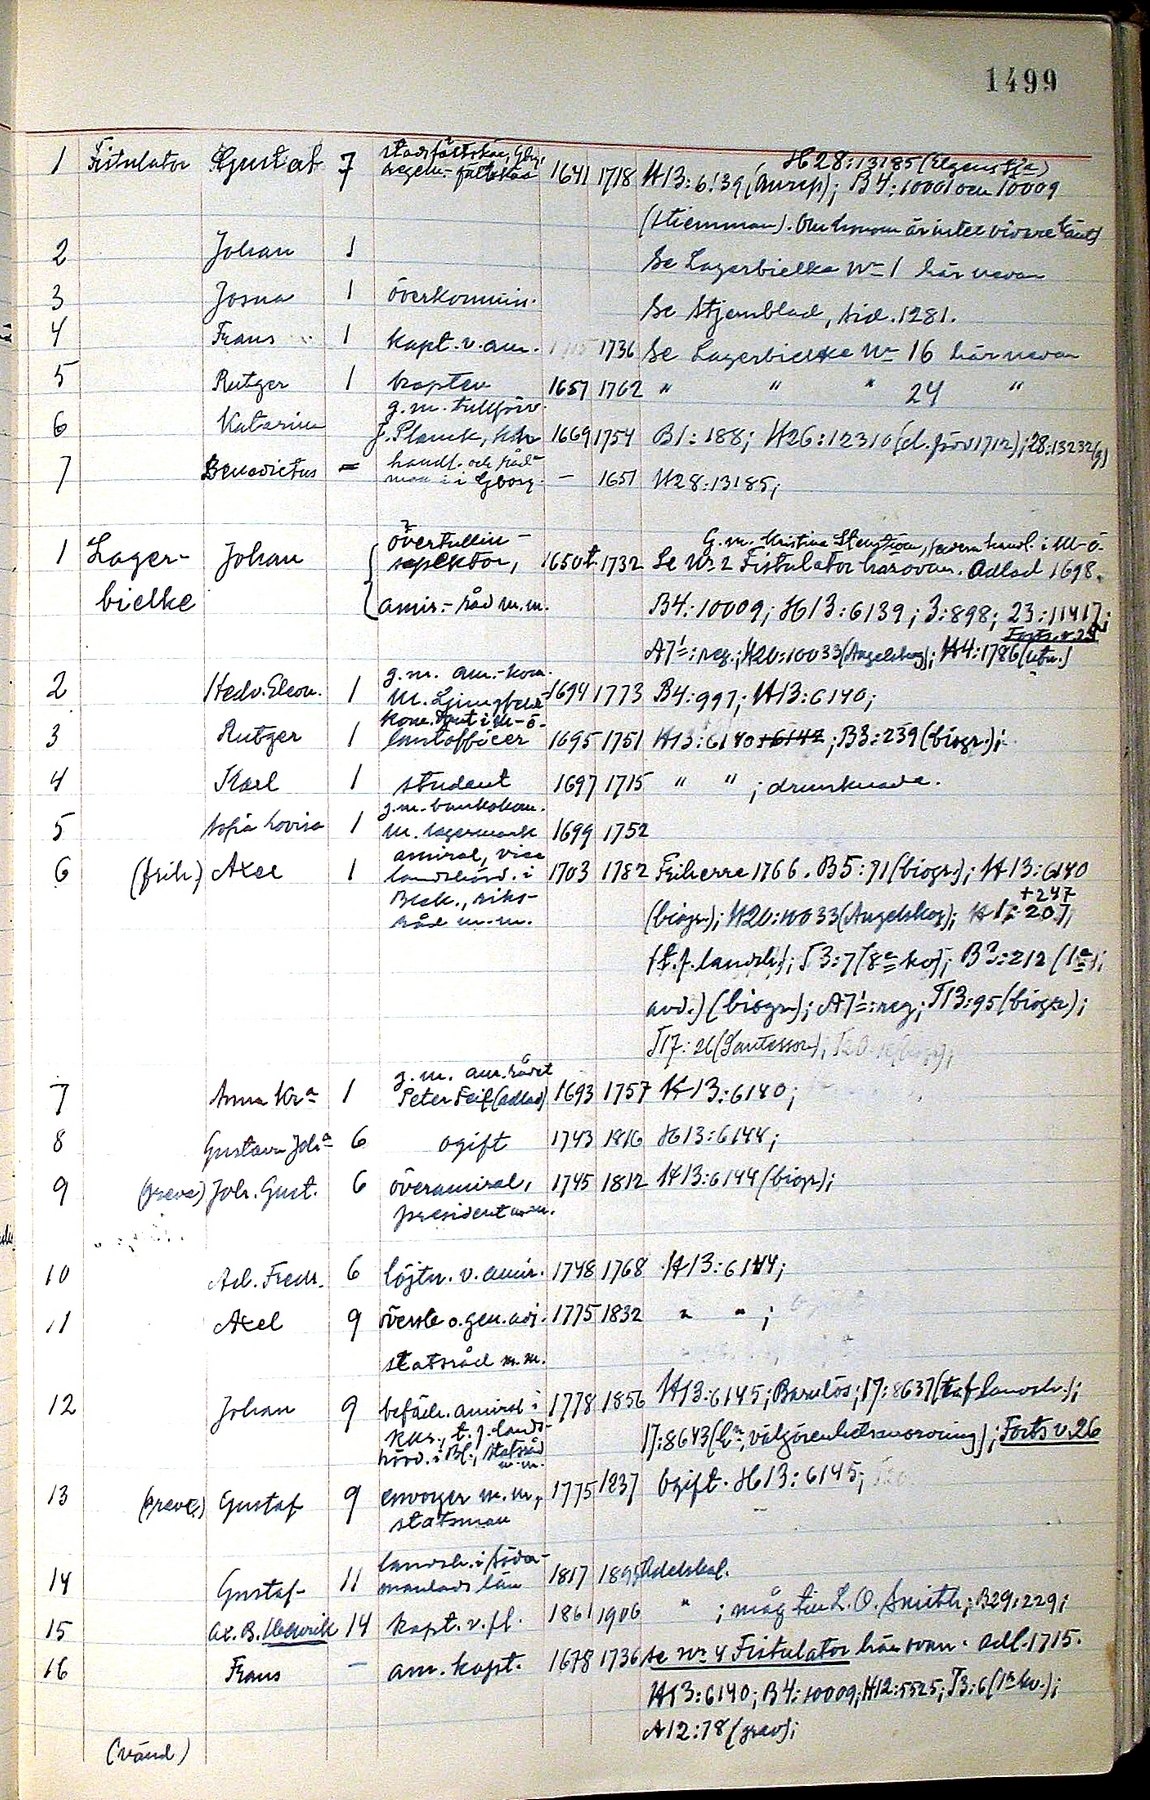 1499
1 Fistulator Gustaf 7 stadsfältskär, Gbg, 1641 1718 H28:13185 (Elgenst. fl a)
regem.-fältskär H13:6139 (Anrep); B4:10001 och 10009
(Stiernman). Om honom är intet vidare känt
2 Johan 1 Se Lagerbielke Nr 1 här nedan
3 Josua 1 överkommis. Se Stjernblad, sid. 1281.
4 Frans 1 kapt. v. am. 1736 Se Lagerbielke Nr 16 här nedan
5 Rutger 1 kapten 1657 1762 " " " 24 "
6 Katarina g. m. tullförv.
J. Planck, 1669 1754 B1:188; H26:12310 (d. förv 1712); 28:13232 (g)
7 Benedictus = handl. och råd-
man i Gborg. — 1651 H28:13185;
1 Lager- Johan övertullin- G. m. Kristina Stenström, handl. i
bielke spektor, 1650 t. 1732 Se Nr 2 Fistulator härovan. Adlad 1698.
amir.- råd m. m. B4:10009; H13:6139; 3:898; 23:11417;
Forts. v. 25
A7¹:reg.; H20:10033 (Angelskog); H4:1786 (utn.)
2 Hedv. Eleon. 1 g. m. am.-kom.
M. Ljungfelt 1694 1773 B4:997; H13:6140;
3 Rutger 1
tullofficer 1695 1751 H13:6140+6142; B3:239 (biogr.);
4 Karl 1 student 1697 1715 " " ; drunknade.
5 Sofia Lovisa 1 g. m. bankokom.
M. Lagermark 1699 1752
6 (frih.) Axel 1 amiral, vice
landshövd. i
Bleck., riks-
råd m. m. 1703 1782 Friherre 1766. B5:71 (biogr.); H13:6140
+247
(biogr.); H20:10033 (Angelskog); H1:207;
(t.f. landsh.); T3:7 (8e ko); B3:212 (1a
avd.) (biogr.); A7¹:reg; T13:95 (biogr.);
T17:26 (Santesson);
7 Anna Kra 1 g. m. am.rådet
Peter Feif (adlad) 1693 1757 H13:6140;
8 Gustava Joha 6 ogift 1743 1816 H13:6144;
9 (greve) Joh. Gust. 6 överamiral, 1745 1812 H13:6144 (biogr);
president m.m.
10 Ad. Fredr. 6 löjtn. v. amir. 1748 1768 H13:6144;
11 Axel 9 överste o. gen. adj. 1775 1832 " " ;
statsråd m. m.
12 Johan 9 befäl. amiral i 1778 1856 H13:6145; Barnlös; 17:8637 (t.f. landsh.);
Kkr., t. f. lands-
hövd. i Bl., statsråd
m. m. 17:8643 (hns välgörenhetsinrättning); Forts v. 26
13 (greve) Gustaf 9 envoyer m. m., 1775 1837 Ogift. H13:6145;
statsman
14 Gustaf 11 landsh. i Söder-
manlands län 1817 1895 Adelskal.
15 Ax. B. Henrik 14 kapt. v. fl. 1861 1906 " ; måg till L. O. Smith; B29:229;
16 Frans — am. kapt. 1678 1736 se Nr 4 Fistulator här ovan. Adl. 1715.
H13:6140; B4:10009; H12:5525; T3:6 (1a kv.);
A12:78 (grav);
(vänd)